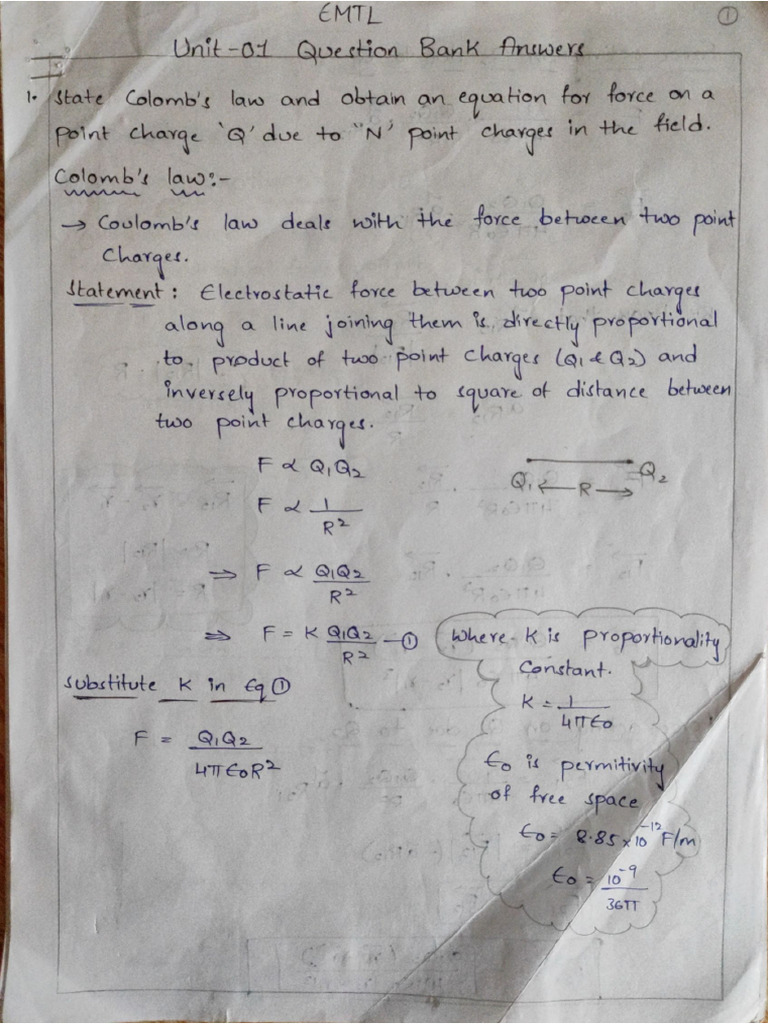 EMTL
①
Unit-01 Question Bank Answers
1. State Colomb's law and obtain an equation for force on a
point charge 'Q' due to "N' point charges in the field.
Colomb's law:-
→ Coulomb's law deals with the force between two point
charges.
Statement: Electrostatic force between two point charges
along a line joining them is directly proportional
to product of two point charges (Q1 & Q2) and
inversely proportional to square of distance between
two point charges.
F ∝ Q1Q2
Q1 ←R→ Q2
F ∝ 1/R²
⇒ F ∝ Q1Q2/R²
⇒ F = K Q1Q2/R² —①
Where K is proportionality
constant.
K = 1/4πϵ0
ϵ0 is permitivity
of free space
ϵ0 = 8.85×10⁻¹² F/m
ϵ0 = 10⁻⁹/36π
Substitute K in Eq ①
F = Q1Q2/4πϵ0R²